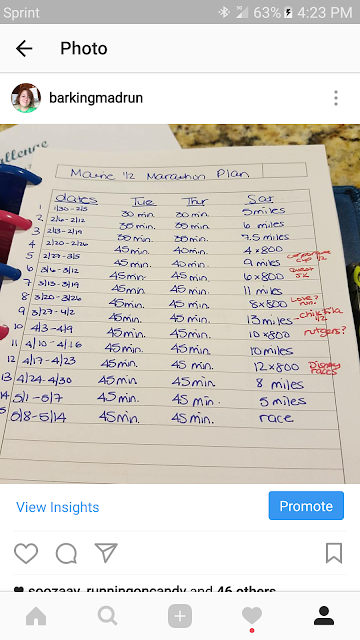 Sprint 63% 4:23 PM
Photo
barkingmadrun
allence
Maine 1/2 Marathon Plan
dates Tue Thur Sat
1 1/30-2/5 30 min. 30 min. 5 miles
2 2/6-2/12 30 min. 30 min. 6 miles
3 2/13-2/19 35 min. 35 min. 7.5 miles
4 2/20-2/26 45 min. 40 min. 4 x 800
5 2/27-3/5 45 min. 40 min. 9 miles
6 3/6-3/12 45 min. 45 min. 6 x 800 5K
7 3/13-3/19 45 min. 45 min. 11 miles
8 3/20-3/26 45 min. 45 min. 8 x 800 Love? run.
9 3/27-4/2 45 min. 45 min. 13 miles - 1/2
10 4/3-4/9 45 min. 45 min. 10 x 800 rutgers?
11 4/10-4/16 45 min. 45 min. 10 miles
12 4/17-4/23 45 min 45 min. 12 x 800 Disney races
13 4/24-4/30 45 min. 45 min. 8 miles
14 5/1-5/7 45 min. 45 min. 5 miles
5 5/8-5/14 45 min. 45 min. race
View Insights Promote
soozaay, runningoncandy and 46 others